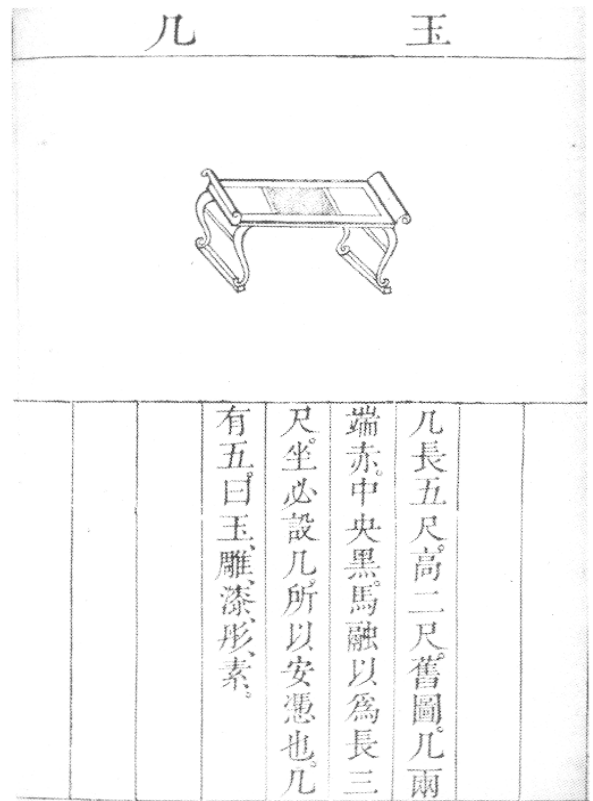 玉几
几長五尺。高二尺。舊圖。几兩
端赤。中央黑。馬融以爲長三
尺。坐必設几。所以安憑也。几
有五。曰玉、雕、漆、彤、素。